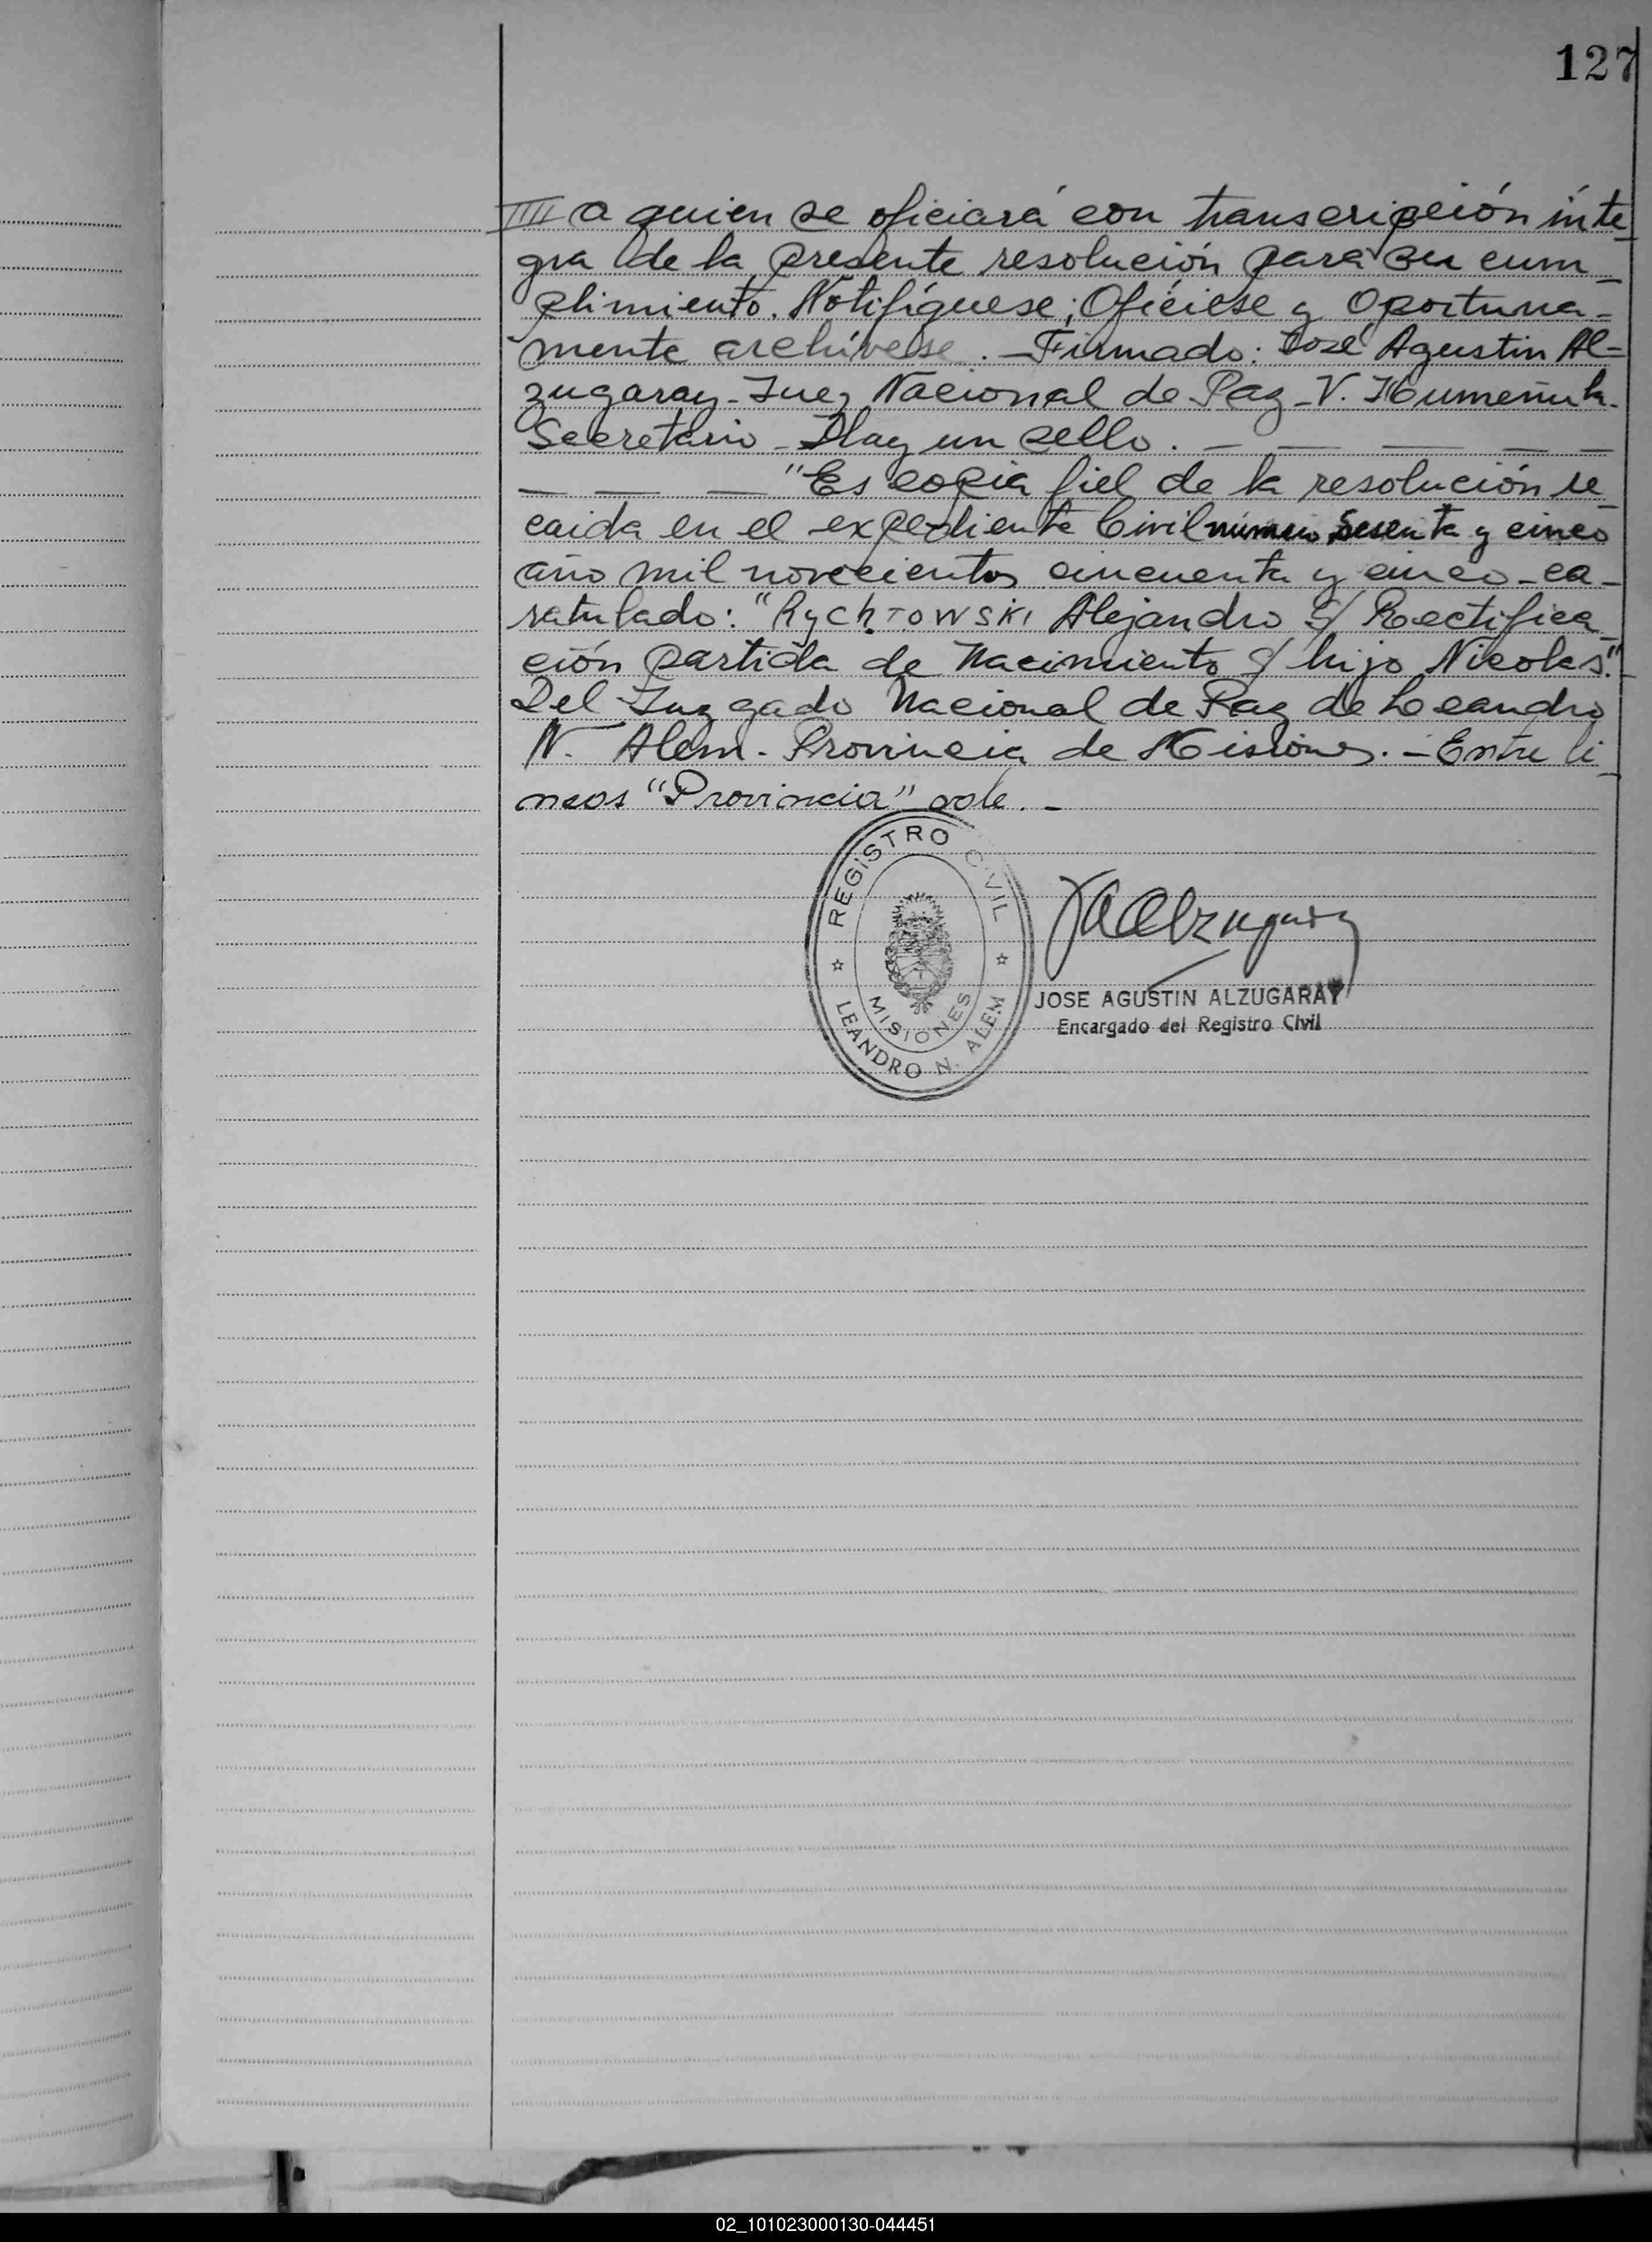 127
//// a quien se oficiará con transcripción ínte_
gra de la presente resolución para su cum_
plimiento. Notifíquese; Ofíciese y Oportuna=
mente archívese. — Firmado: José Agustin Al=
zugaray - Juez Nacional de Paz - V.
Secretario - Hay un sello. — — — — —
— — — "Es copia fiel de la resolución re_
caida en el expediente Civil número Sesenta y cinco
año mil novecientos cincuenta y cinco - ca_
ratulado: "Rychlowski Alejandro s/ Rectifica_
ción partida de Nacimiento s/ hijo Nicolas."
Del Juzgado Nacional de Paz de Leandro
N. Alem - Provincia de Misiones. - Entre li_
neas "Provincia" vale. -
REGISTRO CIVIL
MISIONES
LEANDRO N. ALEM
JAAlzugaray
JOSE AGUSTIN ALZUGARAY
Encargado del Registro Civil
02_101023000130-044451